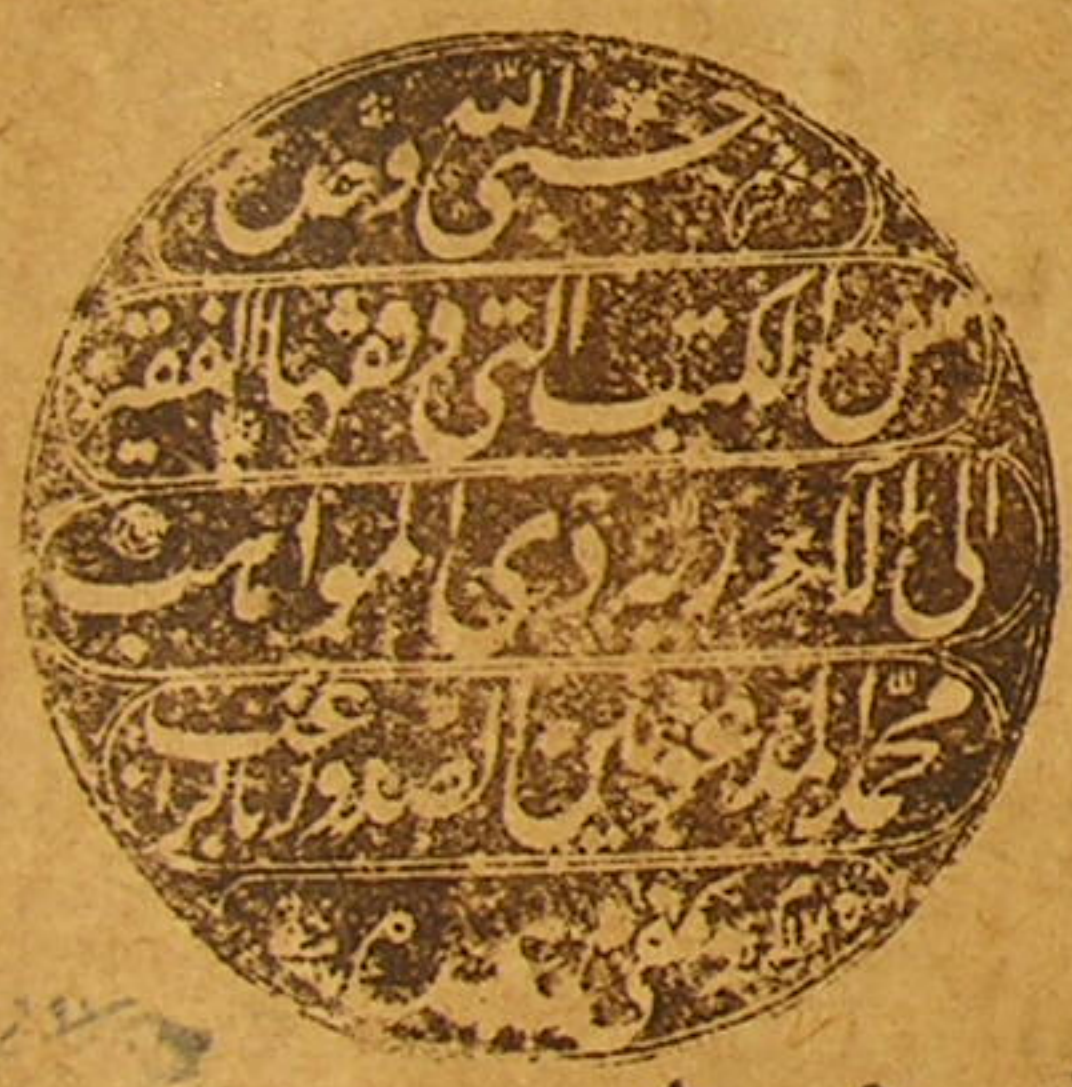 حسبى الله وحده
من الكتب التى وقفها الفقير
الى آلاء ربه ذى المواهب
محمد المدعو بين الصدور بالراغب